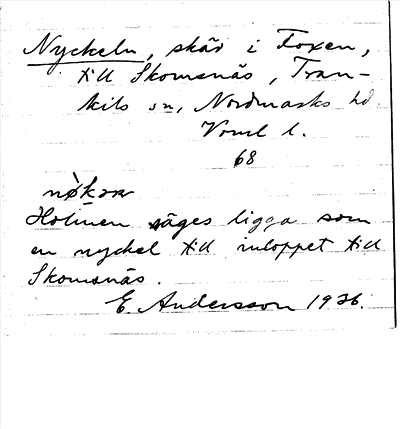 Nyckeln, skär i Foxen,
till Skomsnäs, Tran-
kils sn, Nordmarks hd
Vrml l.
68
Holmen säges ligga som
en nyckel till inloppet till
Skomsnäs.
E. Andersson 1936.